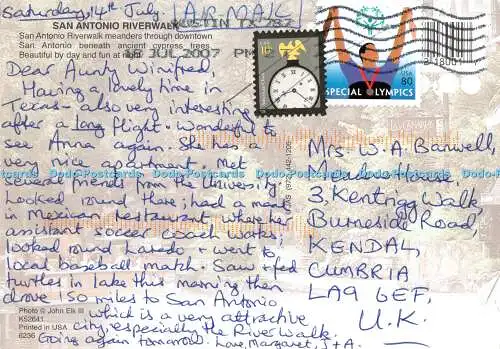 Saturday, 14th July. (AIRMAIL)
SAN ANTONIO RIVERWALK
San Antonio Riverwalk meanders through downtown
San Antonio beneath ancient cypress trees.
Beautiful by day and fun at night.
AUSTIN TX 787
13 JUL 2007 PM
USA 80
SPECIAL OLYMPICS
Dear Aunty Winifred,
Having a lovely time in
Texas - also very interesting
after a long flight. Wonderful to
see Anna again. She has a
very nice apartment. Met
several friends from the University.
Looked round there; had a meal
in Mexican restaurant where her
assistant soccer coach works;
looked round Laredo + went to
local baseball match. Saw + fed
turtles in lake this morning then
drove 150 miles to San Antonio
which is a very attractive
city, especially the River Walk.
Going again tomorrow. Love, Margaret, J+A.
Mrs. W. A. Banwell,
House,
3, Kentrigg Walk,
Burneside Road,
KENDAL,
CUMBRIA
LA9 6EF,
U.K.
Photo © John Elk III
KS2641
Printed in USA
6236
Dodo-Postcards Dodo-Postcards Dodo-Postcards Dodo-Postcards